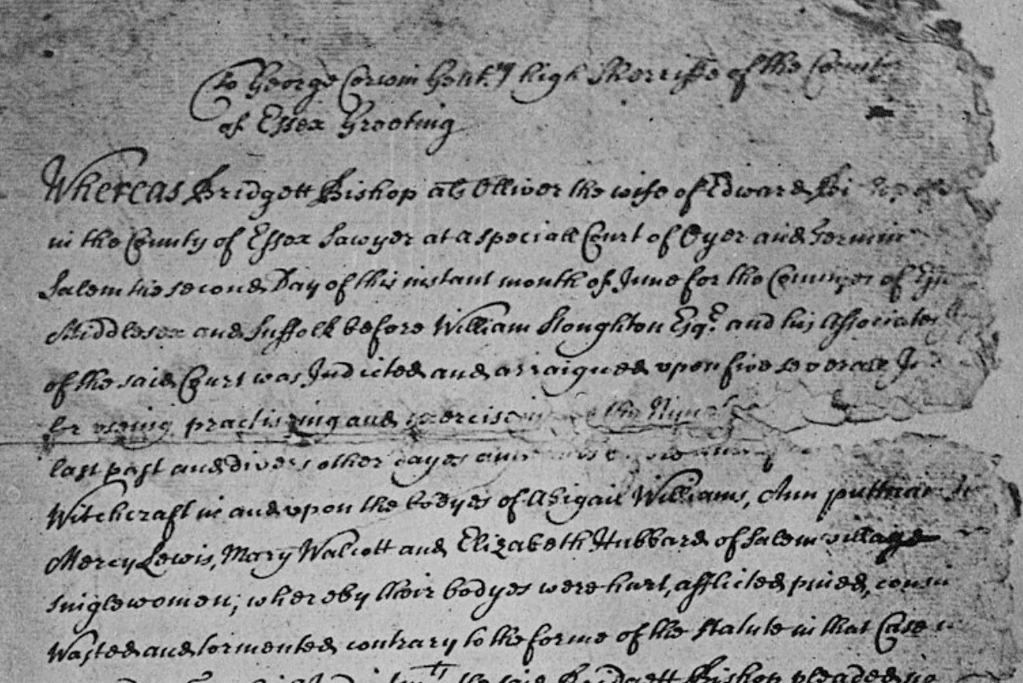 To George Corwin Gent:ⁿ high Sherriffe of the County
of Essex Greeting
Whereas Bridgett Bishop als Olliver the wife of Edward Bi
in the County of Essex Sawyer at a speciall Court of Oyer and Termin
Salem the second Day of this instant month of June for the Countyes of Ess
Middlesex and Suffolk before William Stoughton Esq.ʳ and his Associates
of the said Court was Indicted and arraigned upon five severall
for useing practising and exercising the Nyne
last past and divers other dayes
Witchcraft in and upon the bodyes of Abigail Williams, Ann puttnam Jr
Mercy Lewis, Mary Walcott and Elizabeth Hubbard of Salem village
singlewomen; whereby their bodyes were hurt, afflicted pined, consu
Wasted and tormented contrary to the forme of the Statute in that Case
the said Bridgett Bishop pleaded no